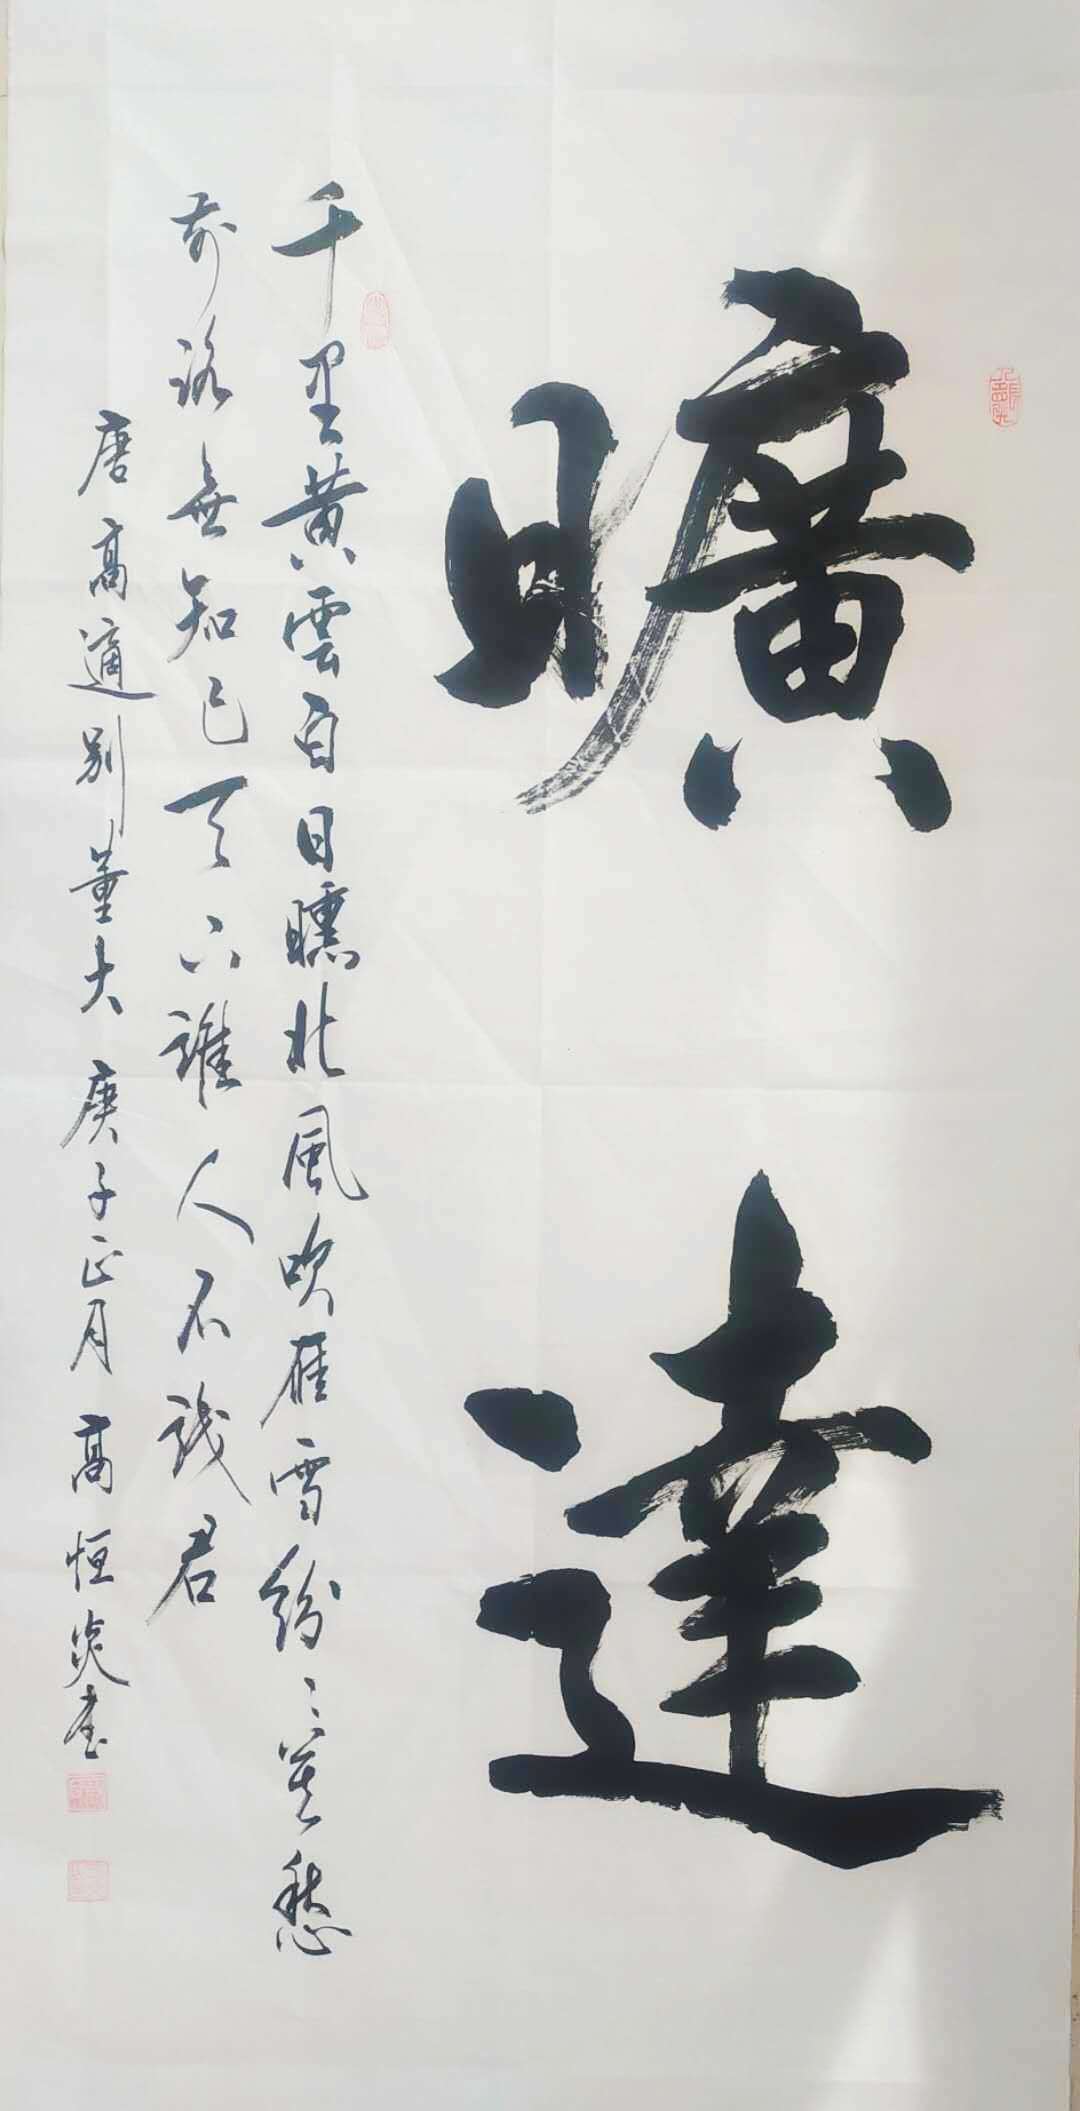 曠達
千里黄雲白日曛北風吹雁雪紛〻莫愁
前路無知己天下誰人不識君
唐高適别董大 庚子正月 高恒炎書